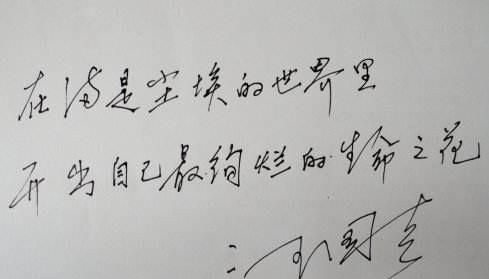 在满是尘埃的世界里
开出自己最绚烂的生命之花